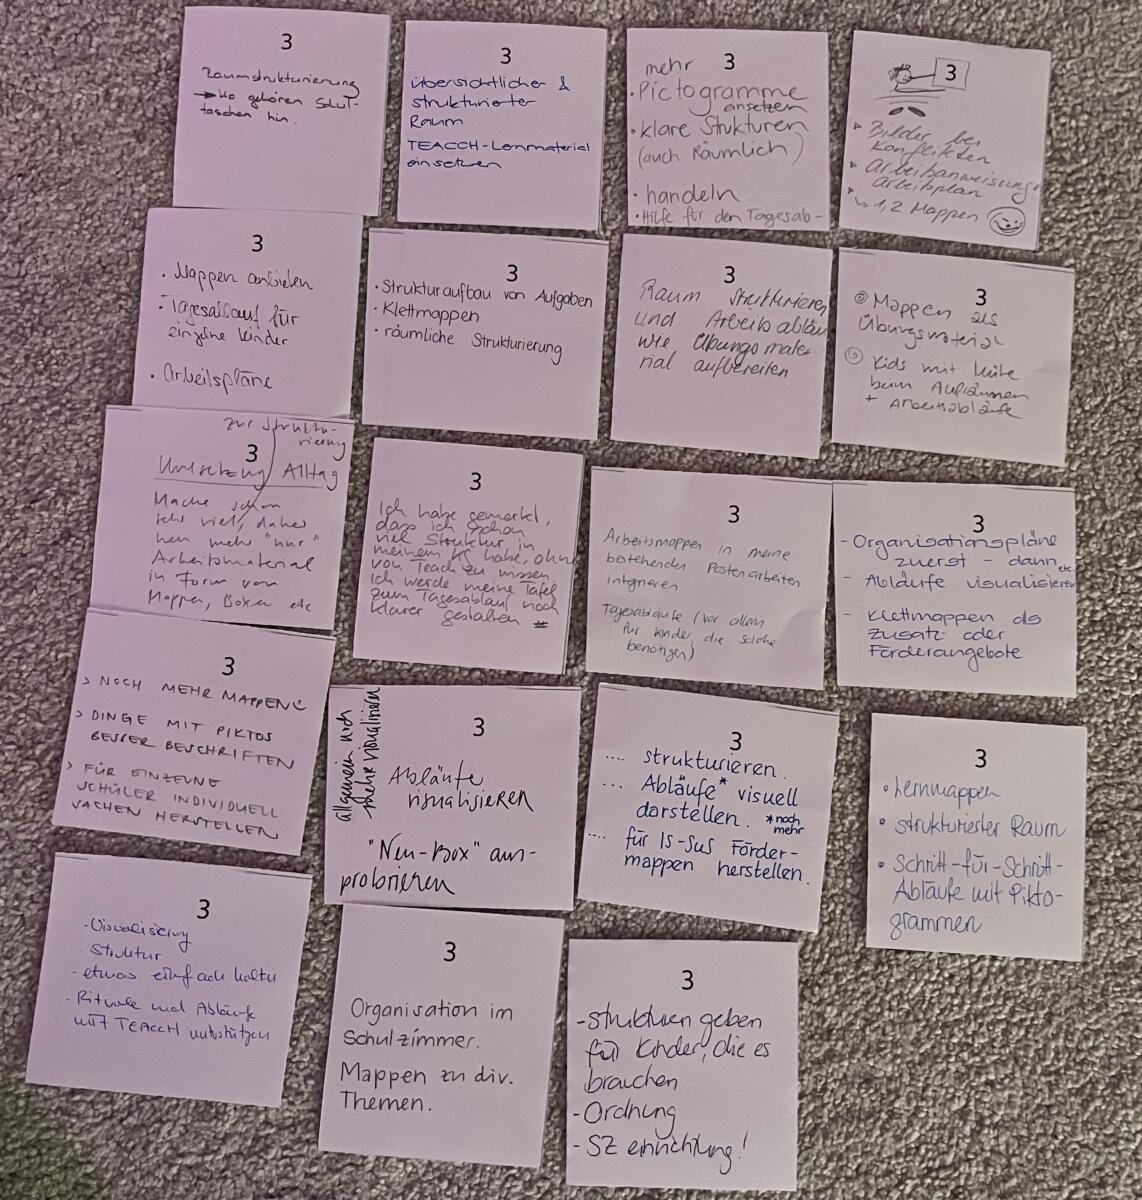 3
Raumstrukturierung
→ Wo gehören Schul-
taschen hin.
3
übersichtlicher &
strukturierter
Raum
TEACCH-Lernmaterial
einsetzen
3
mehr
• Pictogramme
einsetzen
• klare Strukturen
(auch Räumlich)
• handeln
• Hilfe für den Tagesab-
3
▸ Bilder bei
Konflikten
▸ Arbeitsanweisung
arbeitsplan
▸ ↳ 1,2 Mappen
3
• Mappen anbieten
• Tagesablauf für
einzelne Kinder
• Arbeitspläne
3
• Strukturaufbau von Aufgaben
• Klettmappen
• räumliche Strukturierung
3
Raum strukturieren
und Arbeitsabläu
wie Übungsmate-
rial aufbereiten
3
Mappen als
Übungsmaterial
Kids mit
beim Aufräumen
+ Arbeitsabläufe
zur Struktu-
rierung
3
Umsetzung Alltag
Mache schon
sehr viel, daher
mehr "nur"
Arbeitsmaterial
in Form von
Mappen, Boxen etc
3
Ich habe gemerkt,
dass ich schon
viel Struktur in
meinem KG habe, ohne
von Teach zu wissen.
Ich werde meine Tafel
zum Tagesablauf noch
klarer gestalten #
3
Arbeitsmappen in meine
bestehenden Postenarbeiten
integrieren
Tagesabläufe (vor allem
für Kinder, die solche
benötigen)
3
- Organisationspläne
zuerst - dann etc
- Abläufe visualisieren
- Klettmappen als
Zusatz- oder
Förderangebote
3
> NOCH MEHR MAPPEN
> DINGE MIT PIKTOS
BESSER BESCHRIFTEN
> FÜR EINZELNE
SCHÜLER INDIVIDUELL
SACHEN HERSTELLEN
allgemein noch
mehr visualisieren
3
Abläufe
visualisieren
"Neu-Box" aus-
probrieren
3
.... strukturieren.
... Abläufe* visuell
darstellen. *noch
mehr
.... für IS-SuS Förder-
mappen herstellen.
3
• Lernmappen
• strukturierter Raum
• Schritt-für-Schritt-
Abläufe mit Pikto-
grammen
3
- Visualisierung
- Struktur
- etwas einfach halten
- Rituale und Abläufe
mit TEACCH unterstützen
3
Organisation im
Schulzimmer.
Mappen zu div.
Themen.
3
- Strukturen geben
für Kinder, die es
brauchen
- Ordnung
- SZ einrichtung!